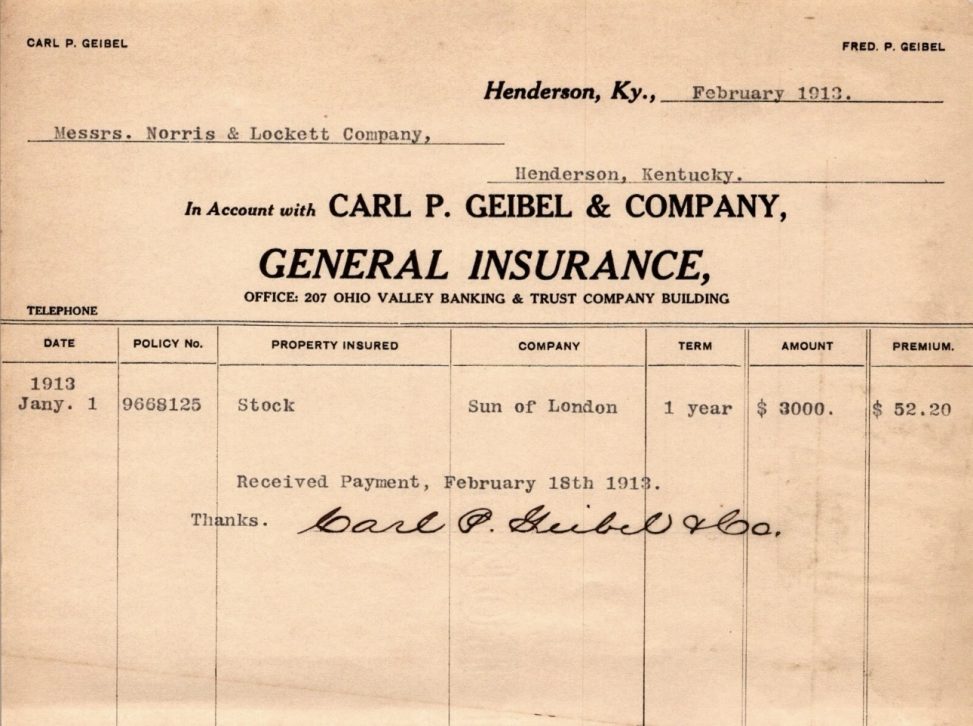 CARL P. GEIBEL FRED. P. GEIBEL
Henderson, Ky., February 1913.
Messrs. Norris & Lockett Company,
Henderson, Kentucky.
In Account with CARL P. GEIBEL & COMPANY,
GENERAL INSURANCE,
OFFICE: 207 OHIO VALLEY BANKING & TRUST COMPANY BUILDING
TELEPHONE
DATE POLICY No. PROPERTY INSURED COMPANY TERM AMOUNT PREMIUM.
1913
Jany. 1 9668125 Stock Sun of London 1 year $ 3000. $ 52.20
Received Payment, February 18th 1913.
Thanks. Carl P. Geibel & Co.